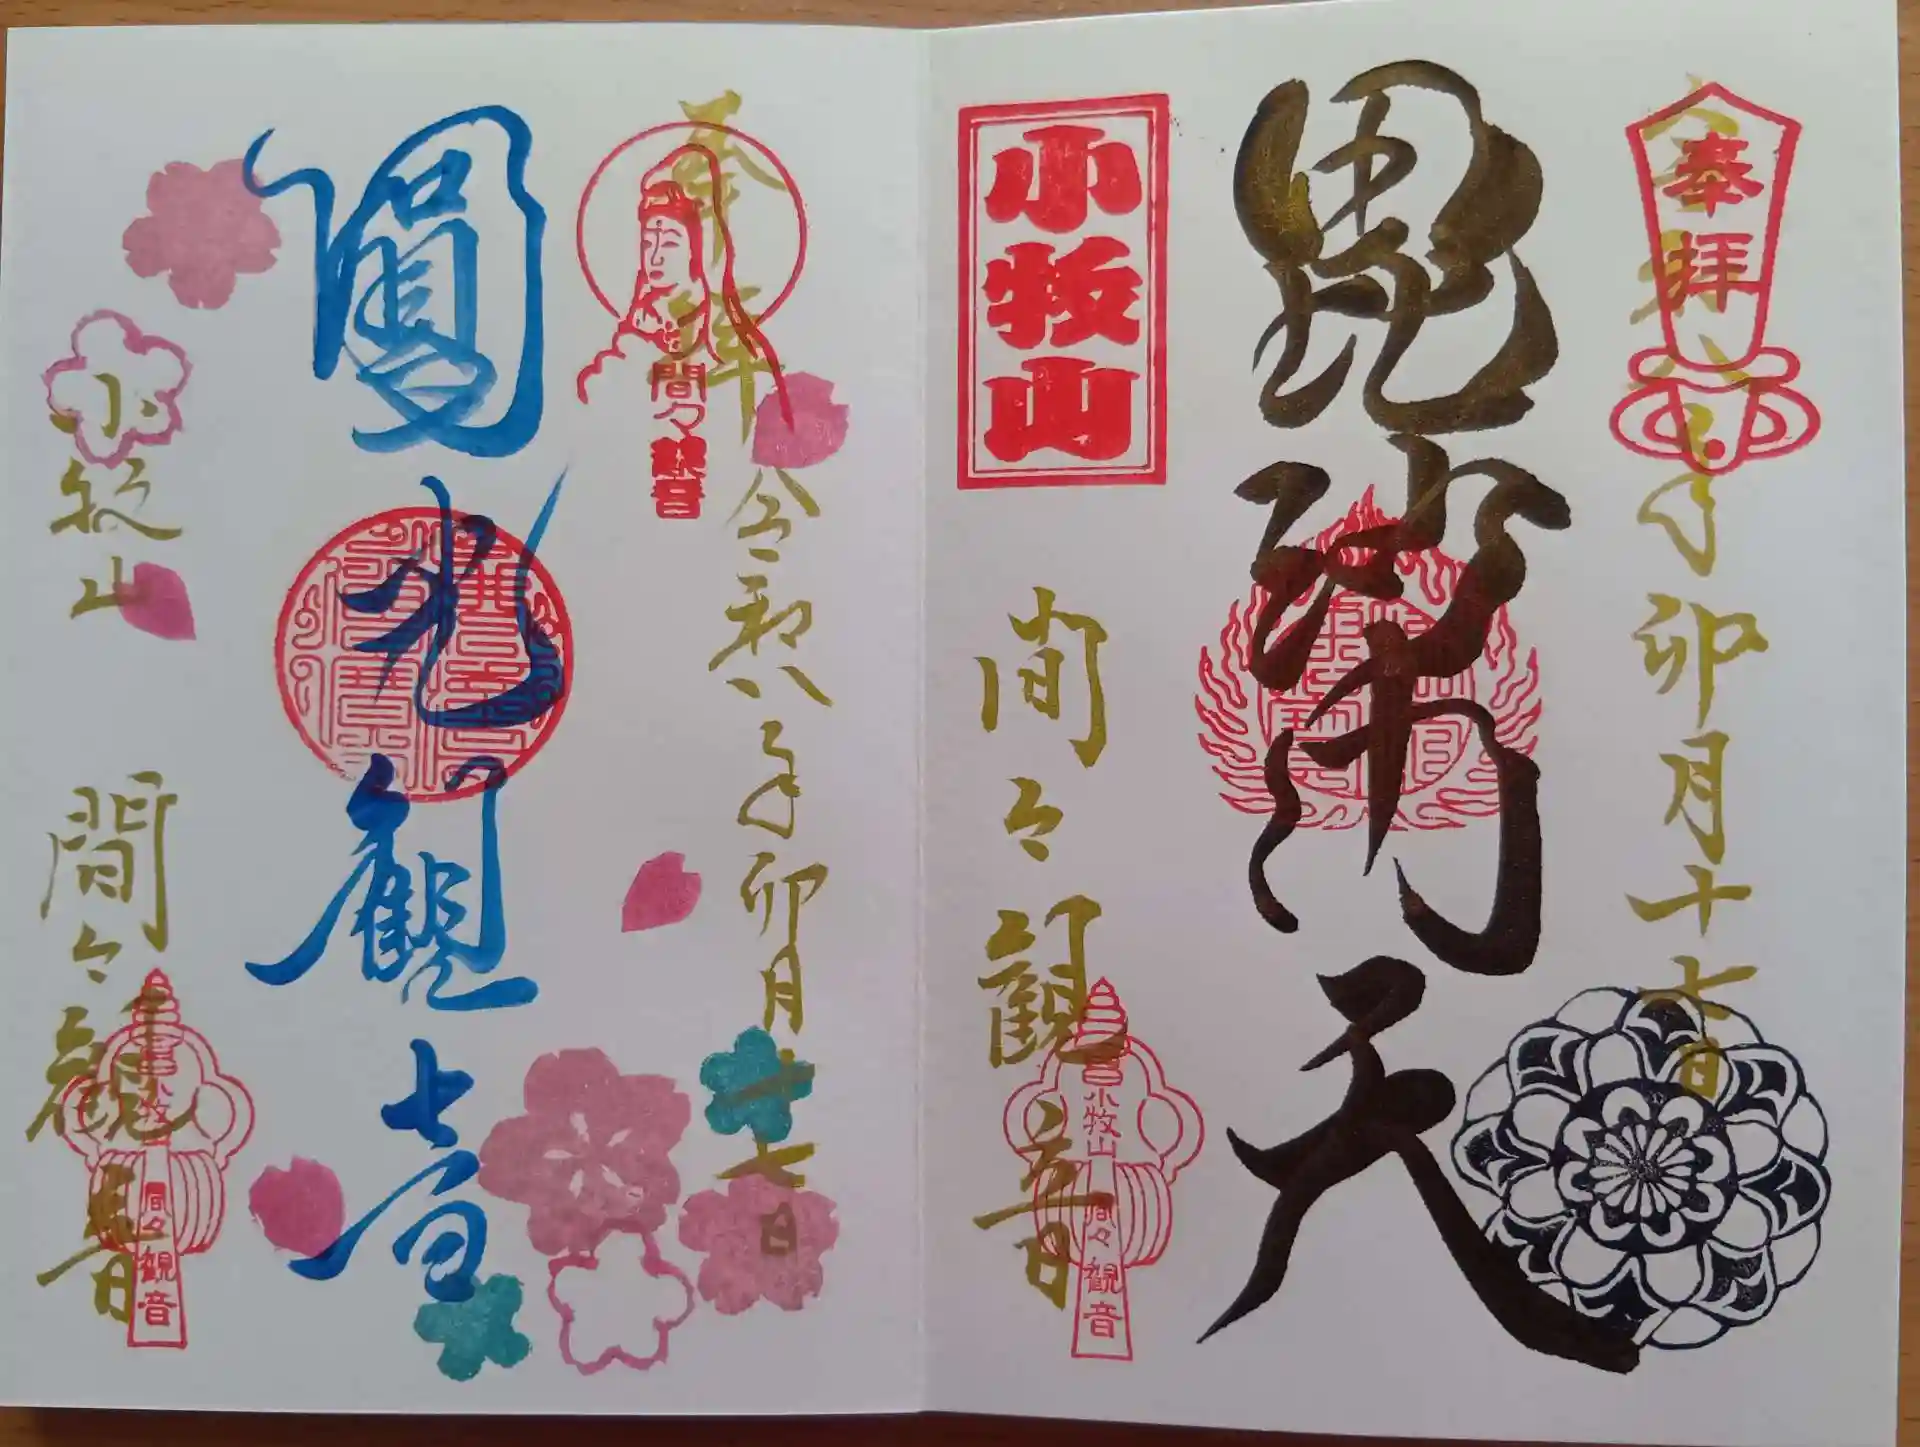 奉拝
令和八年卯月十七日
毘沙門天
小牧山
間々観音
小牧山
間々観音
奉拝
令和八年卯月十七日
間々観音
圓光観世音
小牧山
間々観音
小牧山
間々観音